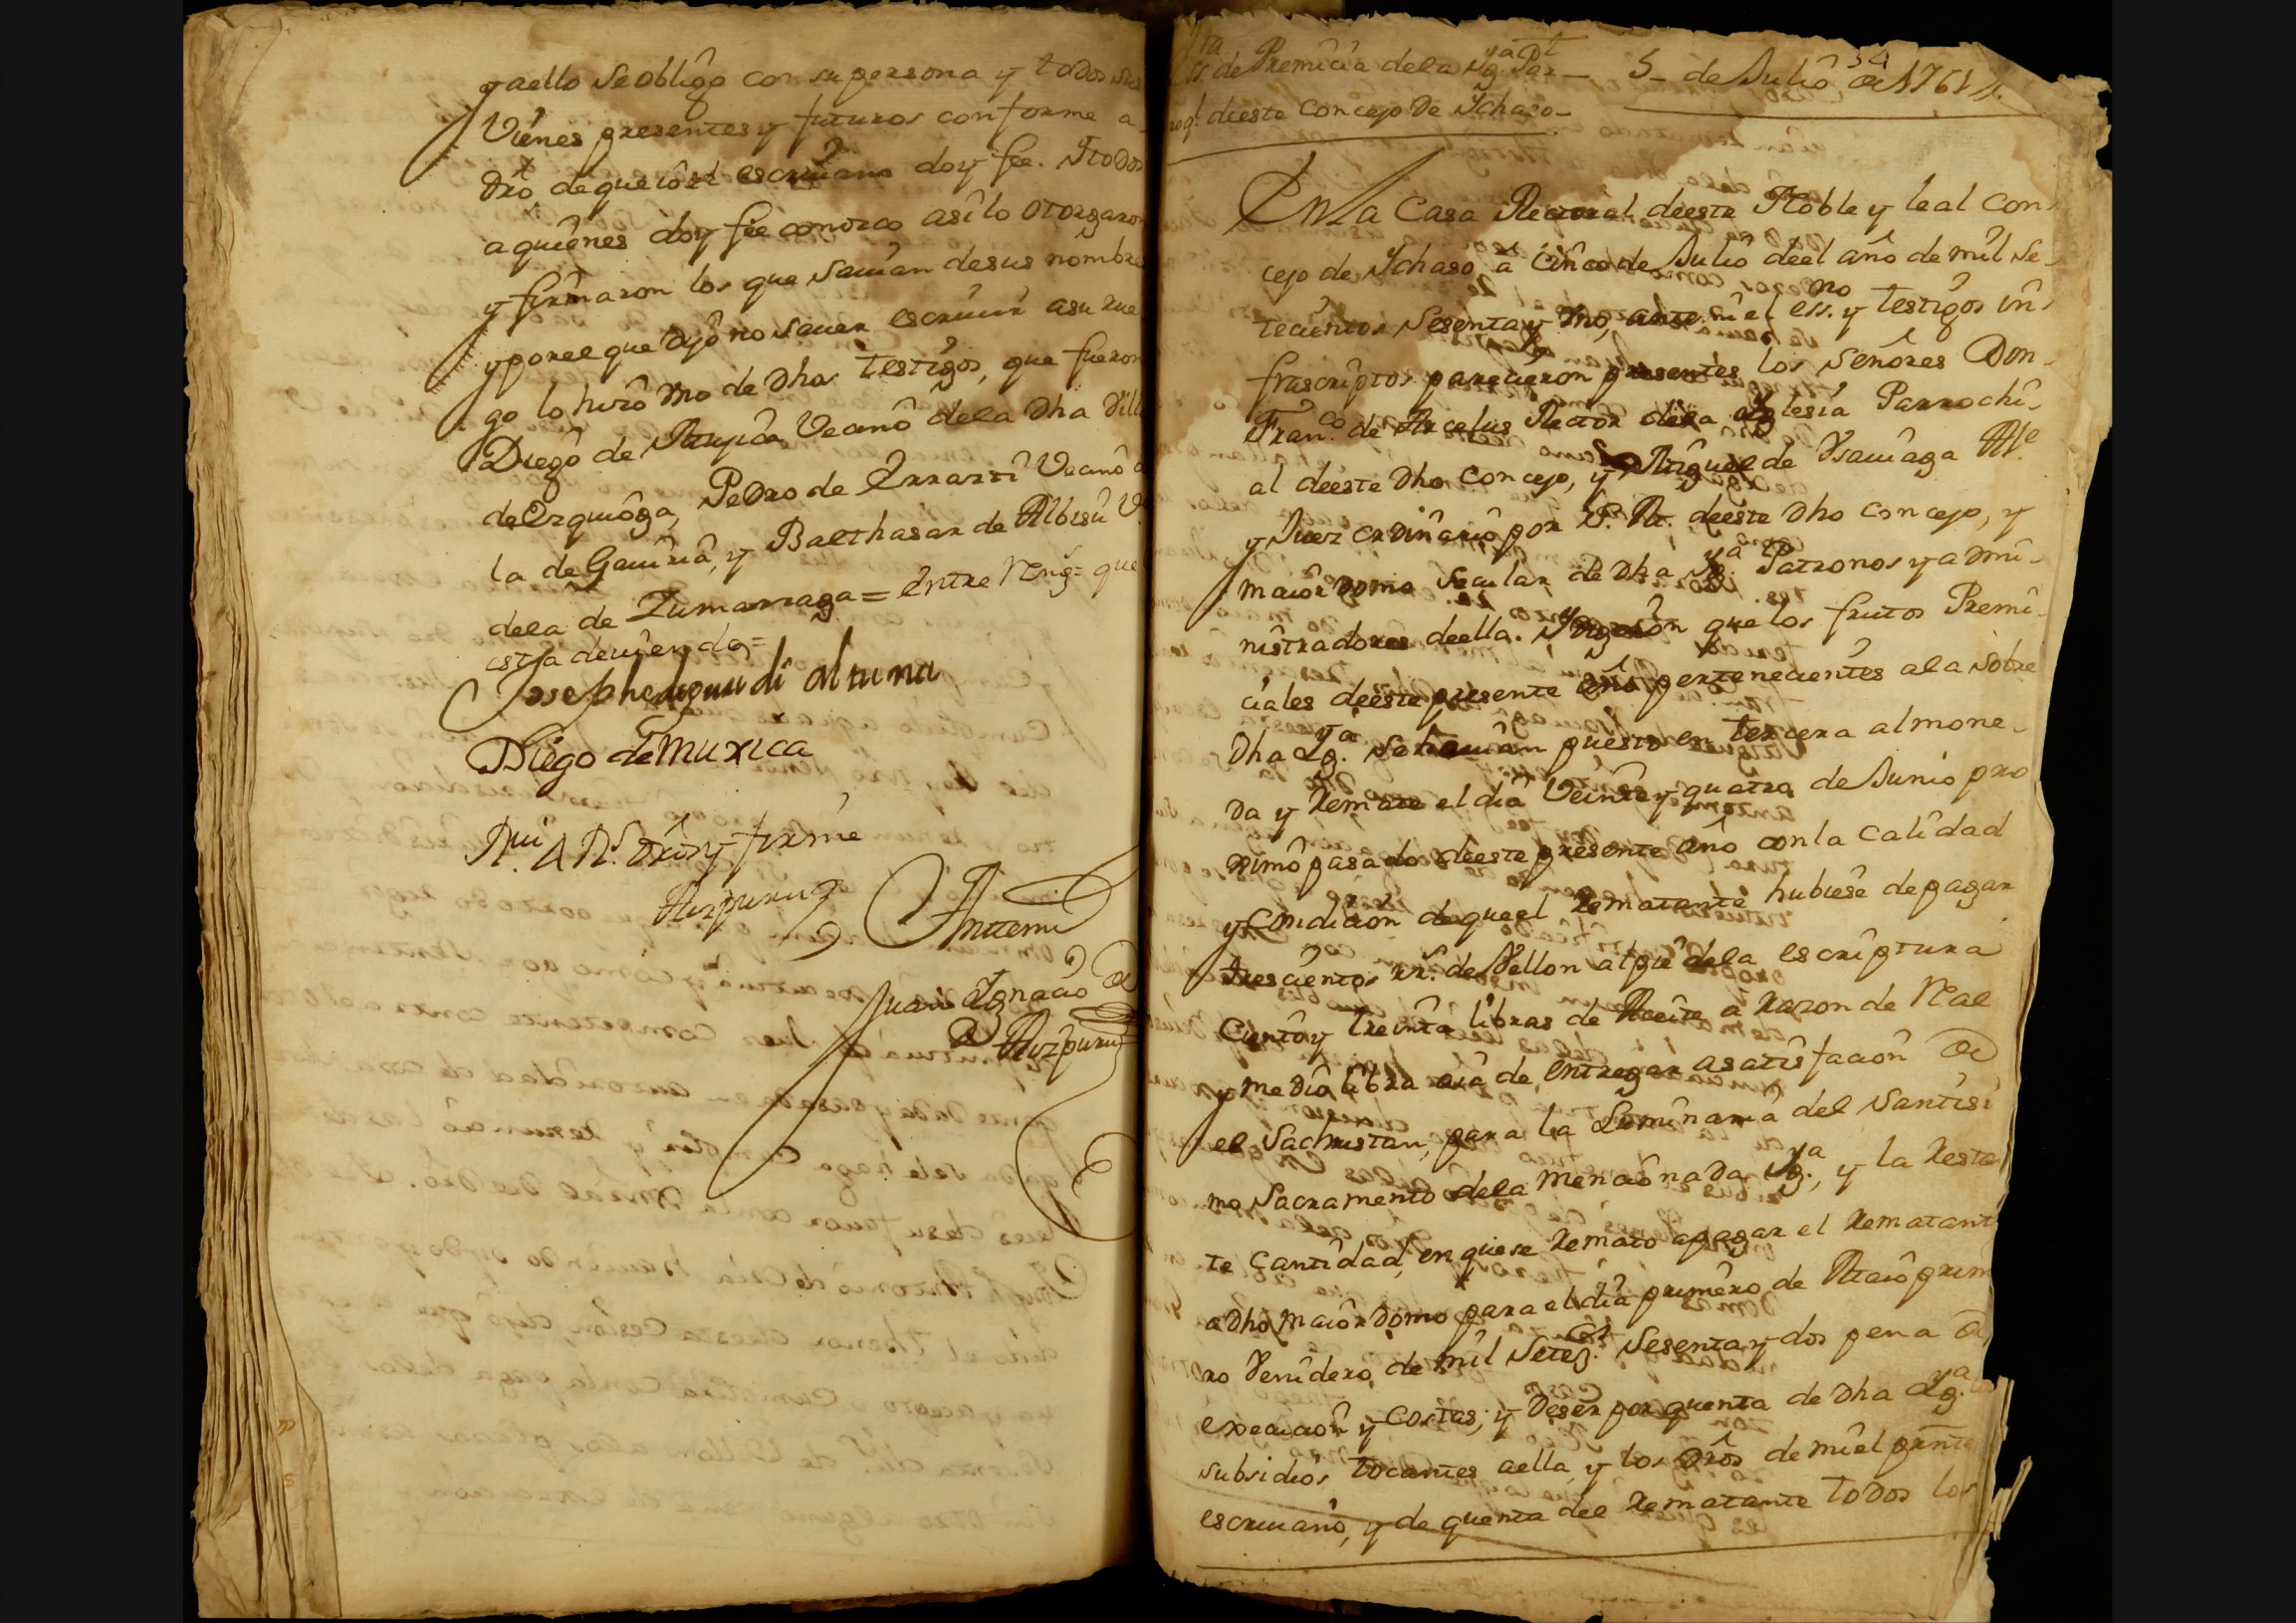 y aello se obligo con su persona y todos sus
Vienes presentes y futuros conforme a
dro de que io el escriuano doy fee. Y todos
a quienes doy fee conozco asi lo otorgaron
y firmaron los que sauian de sus nombre
y por el que dijo no sauer escriuir a su rue
go lo hizo vno de dhos testigos, que fueron
Diego de Muxica Vecino de la dha Villa
de Ezquioga, Pedro de Izxaxti Vecino
la de Gauiria, y Balthasar de Albisu V.
de la de Zumarraga = entre Rengs = que
esta deuiendo =
Joseph de altuna
Diego de Muxica
Rui A Rs. dros y firme
Aizpuru
Antemi
Juan Ignacio de
Aizpuru
Ssra de Premicia de la Yga Par — 5 de Julio de 1761 „
roql. deeste Concejo de Ychaso —
34
En la Casa Rectoral deeste Noble y leal Con-
cejo de Ychaso á cinco de Julio deel año de mil se-
tecientos sesenta y vno, ante mi el essno. y testigos in-
frascriptos parecieron presentes los señores Don
Franco. de Arcelus Rector dela Iglesia Parrochi-
al deeste dho concejo, y Miguel de Ysauiaga Alle.
y Juez ordinario por S. M. deeste dho concejo, y
maiordomo secular de dha Yga. Patronos y admi-
nistradores deella. Y Dijeron que los frutos Premi-
ciales deeste presente año pertenecientes ala sobre
dha Yga. se hauian puesto en tercera almone-
da y Remate el dia Veinte y quatro de Junio pro
ximo pasado deeste presente año con la calidad
y condicion de que el Rematante hubiese de pagar
trescientos rrs. de Vellon al pie dela escriptura
Ciento y treinta libras de Aceite a razon de Real
y medio libra aia de entregar a satisfacion de
el Sachristan, para la Luminaria del Santisi
mo Sacramento dela mencionada Yga., y la Resta
te Cantidad, en que se Remato a pagar el Rematant
a dho maiordomo para el dia primero de Maio prim
ro Venidero, de mil Seteztos. Sesenta y dos pena de
execucion y costas; y de ser por quenta de dha Yga. los
subsidios tocantes aella y los dros de mi el prnte
escriuano, y de quenta del Rematante todos los